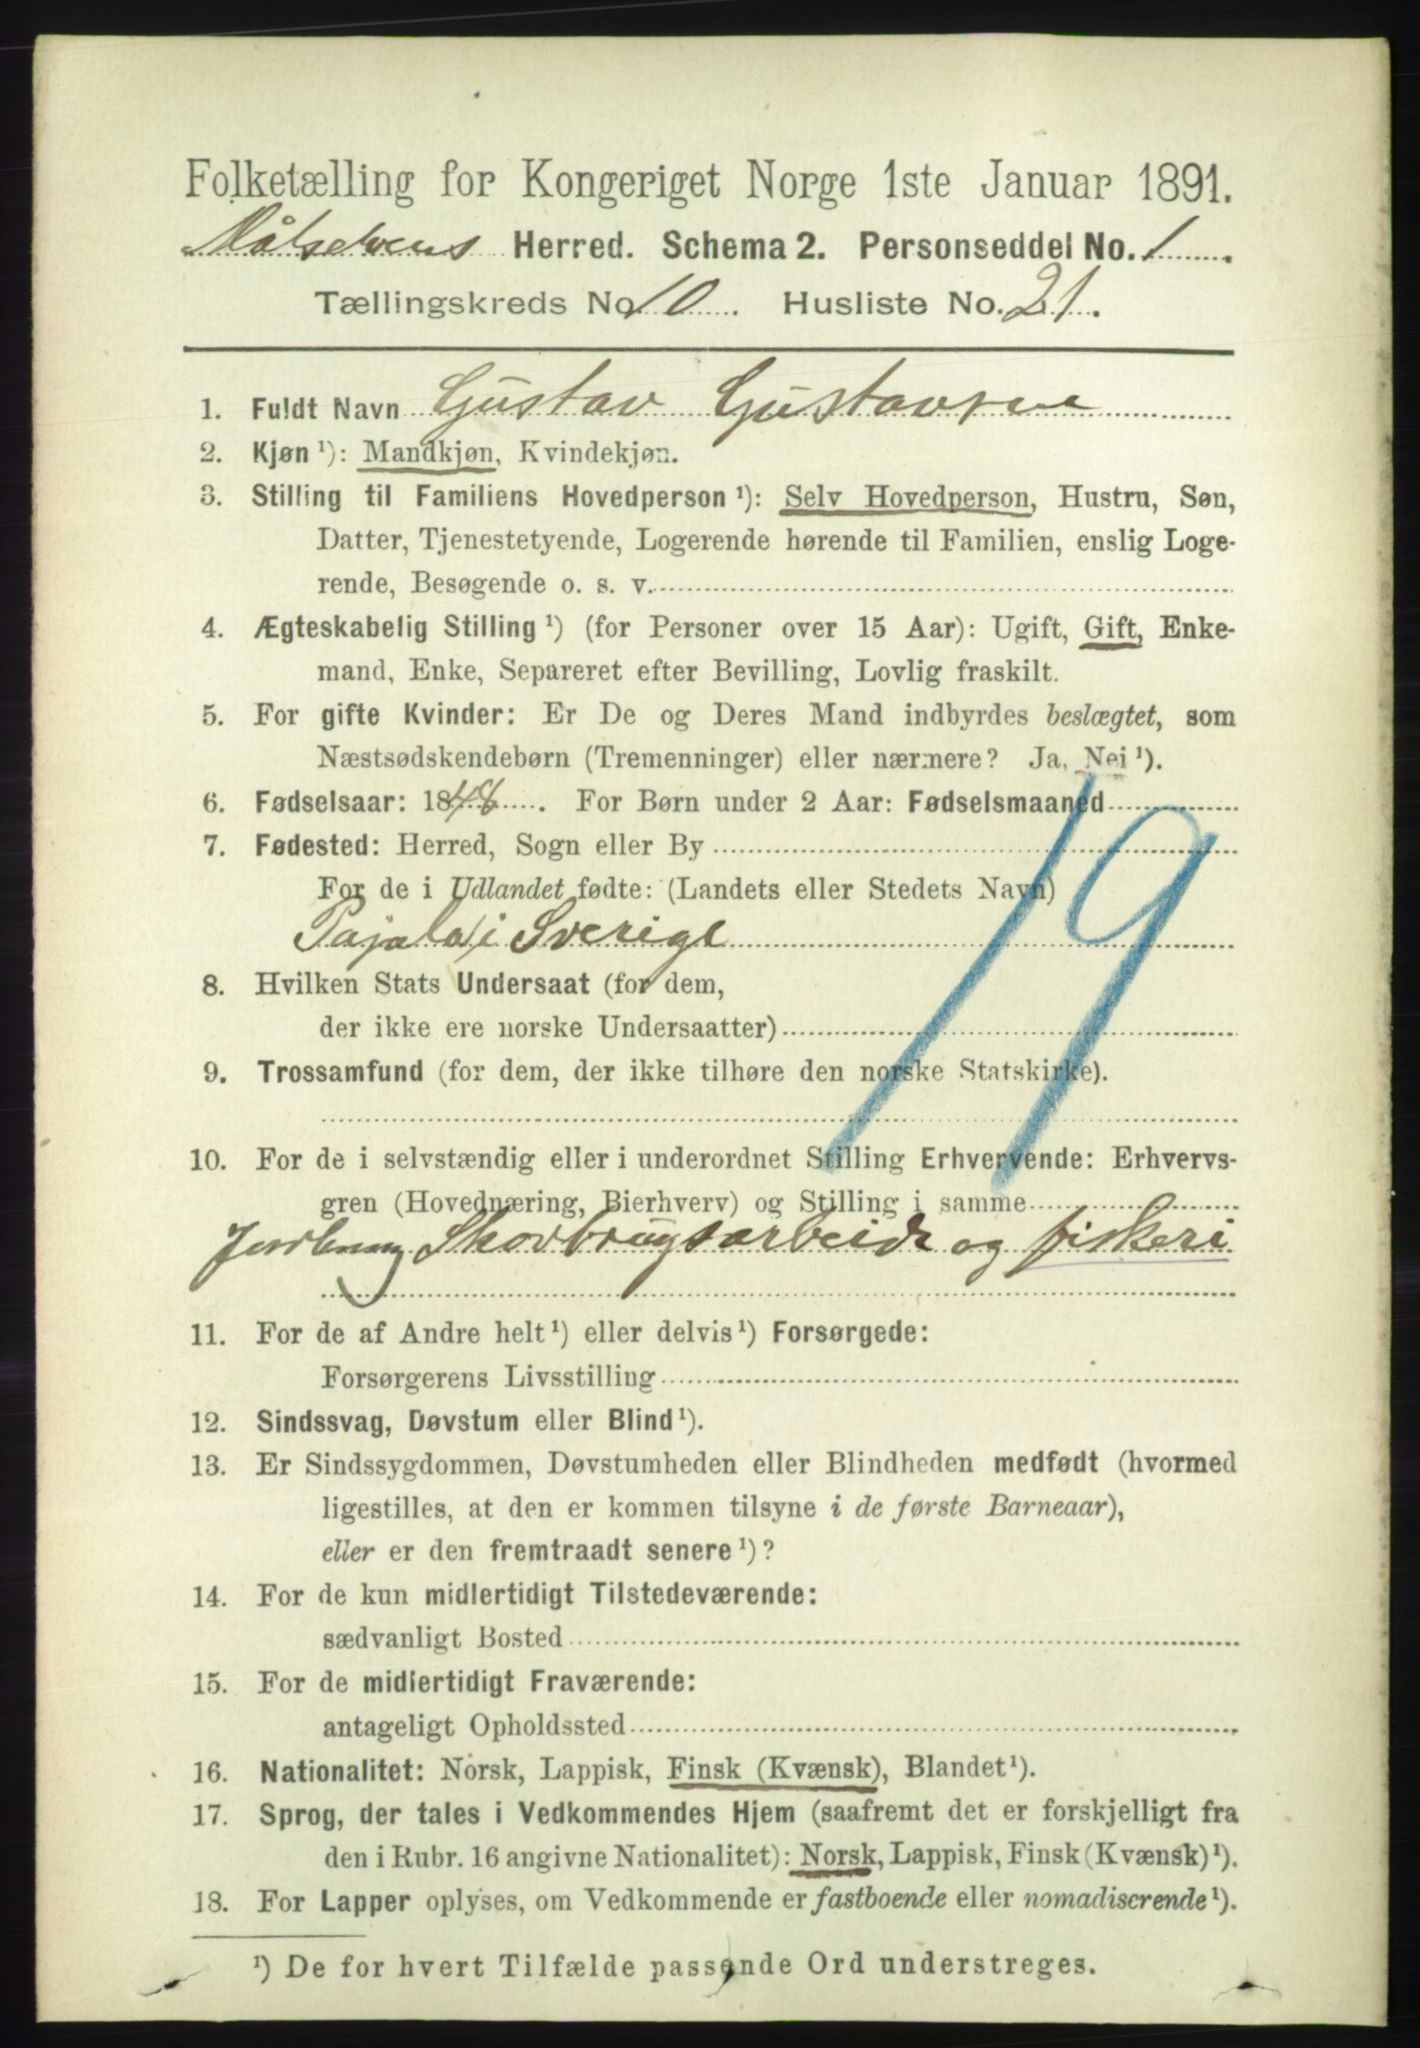 Folketælling for Kongeriget Norge 1ste Januar 1891.
Målselvens Herred. Schema 2. Personseddel No. 1
Tællingskreds No. 10. Husliste No. 21.
1. Fuldt Navn Gustav Gustavsen
2. Kjøn ¹): Mandkjøn, Kvindekjøn.
3. Stilling til Familiens Hovedperson ¹): Selv Hovedperson, Hustru, Søn,
Datter, Tjenestetyende, Logerende hørende til Familien, enslig Loge-
rende, Besøgende o. s. v.
4. Ægteskabelig Stilling ¹) (for Personer over 15 Aar): Ugift, Gift, Enke-
mand, Enke, Separeret efter Bevilling, Lovlig fraskilt.
5. For gifte Kvinder: Er De og Deres Mand indbyrdes beslægtet, som
Næstsødskendebørn (Tremenninger) eller nærmere? Ja, Nei ¹).
6. Fødselsaar: 1848. For Børn under 2 Aar: Fødselsmaaned
7. Fødested: Herred, Sogn eller By
For de i Udlandet fødte: (Landets eller Stedets Navn)
Pajala i Sverige
8. Hvilken Stats Undersaat (for dem,
der ikke ere norske Undersaatter)
9. Trossamfund (for dem, der ikke tilhøre den norske Statskirke).
19
10. For de i selvstændig eller i underordnet Stilling Erhvervende: Erhvervs-
gren (Hovednæring, Bierhverv) og Stilling i samme
Jordbrug Skovbrugsarbeide og fiskeri
11. For de af Andre helt ¹) eller delvis ¹) Forsørgede:
Forsørgerens Livsstilling
12. Sindssvag, Døvstum eller Blind ¹).
13. Er Sindssygdommen, Døvstumheden eller Blindheden medfødt (hvormed
ligestilles, at den er kommen tilsyne i de første Barneaar),
eller er den fremtraadt senere ¹)?
14. For de kun midlertidigt Tilstedeværende:
sædvanligt Bosted
15. For de midlertidigt Fraværende:
antageligt Opholdssted
16. Nationalitet: Norsk, Lappisk, Finsk (Kvænsk), Blandet ¹).
17. Sprog, der tales i Vedkommendes Hjem (saafremt det er forskjelligt fra
den i Rubr. 16 angivne Nationalitet): Norsk, Lappisk, Finsk (Kvænsk) ¹).
18. For Lapper oplyses, om Vedkommende er fastboende eller nomadiserende ¹).
¹) De for hvert Tilfælde passende Ord understreges.